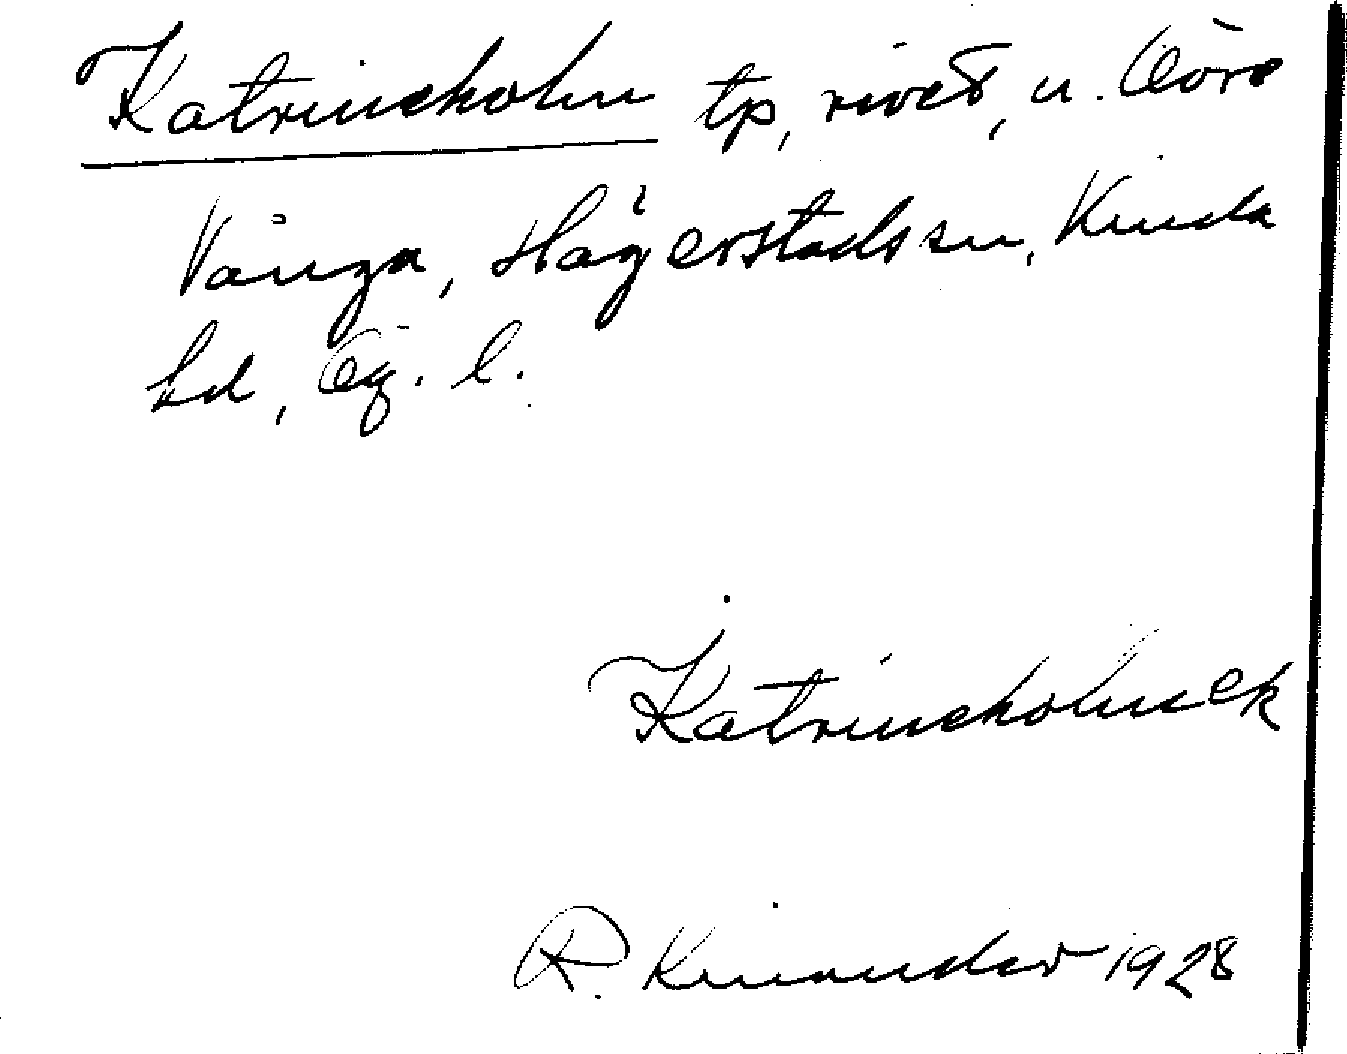 Katrineholm tp, rivet, u. Övre
Vånga, Hägerstads sn, Kinda
hd, Ög. l.
Katrineholm ek
R. Kinander 1928